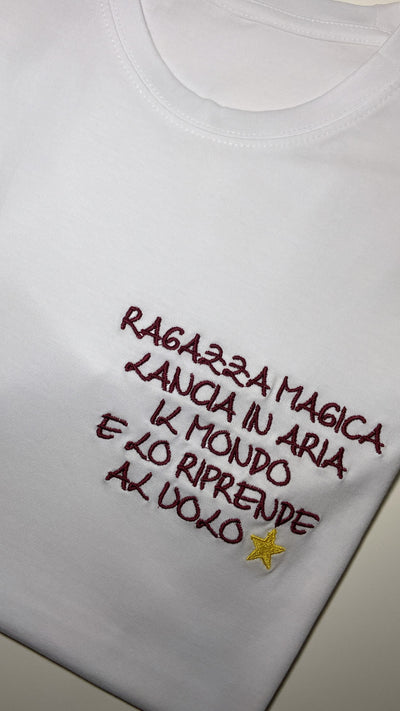 RAGAZZA MAGICA
LANCIA IN ARIA
IL MONDO
E LO RIPRENDE
AL VOLO